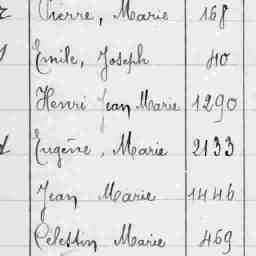 Pierre, Marie 168
Emile, Joseph 40
Henri Jean Marie 1290
Eugène, Marie 2133
Jean Marie 1446
Célestin Marie 469